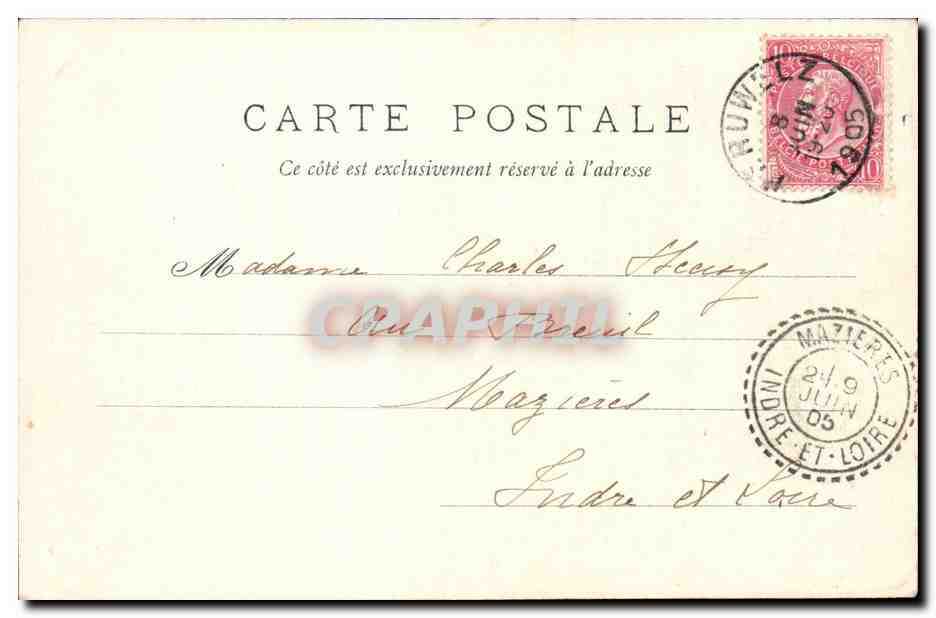 CARTE POSTALE
Ce côté est exclusivement réservé à l'adresse
10 10
BELGIQUE
PERUWELZ
8
JUIN
1905
10
Madame Charles
Au Breuil
CPAPHIL
Mazières
Indre et Loire
MAZIERES
2/. 9
JUIN
05
INDRE-ET-LOIRE